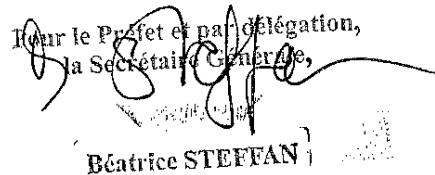 Pour le Préfet et par délégation,
la Secrétaire Générale,
Béatrice STEFFAN